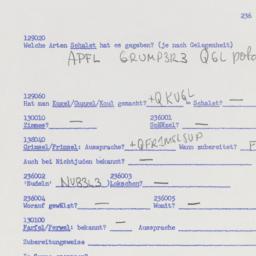 236
129020
Welche Arten Schalet hat es gegeben? (je nach Gelegenheit)
APFL GRUMP3R3 QGL
129060
Hat man Kugel/Guggel/Koul gemacht? +QKUGL = Schalet? —
130010 236001
Zimmes? — Schlösel? —
138040
Grimsel/Frimsel: Aussprache? +QFR1MSLSUP Wann zubereitet? F
Auch bei Nichtjuden bekannt? —
236002 236003
'Nudeln' NUB3L3 Lokschen? —
236004 236005
Worauf gewälzt? — Womit? —
130100
Farfel/Ferwel: bekannt? — Aussprache
Zubereitungsweise